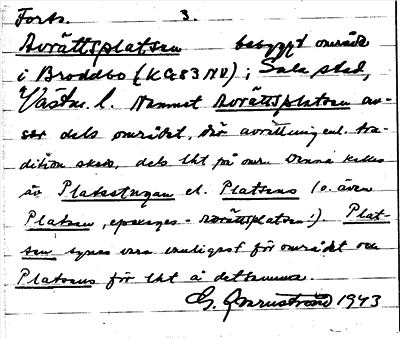 Forts. 3.
Avrättsplatsen bebyggt område
i Broddbo (KG83NV) i Sala stad,
Västm. l. Namnet Avrättsplatsen av-
ser dels området, där avrättning enl. tra-
dition skett, dels lht på omr. Denna kallas
äv Platsstugan el. Platsens (o. även
Platsen, eporeges = avrättsplatsen!). Plat-
sen synes vara vanligast för området och
Platsens för lht å detsamma.
G. 1943